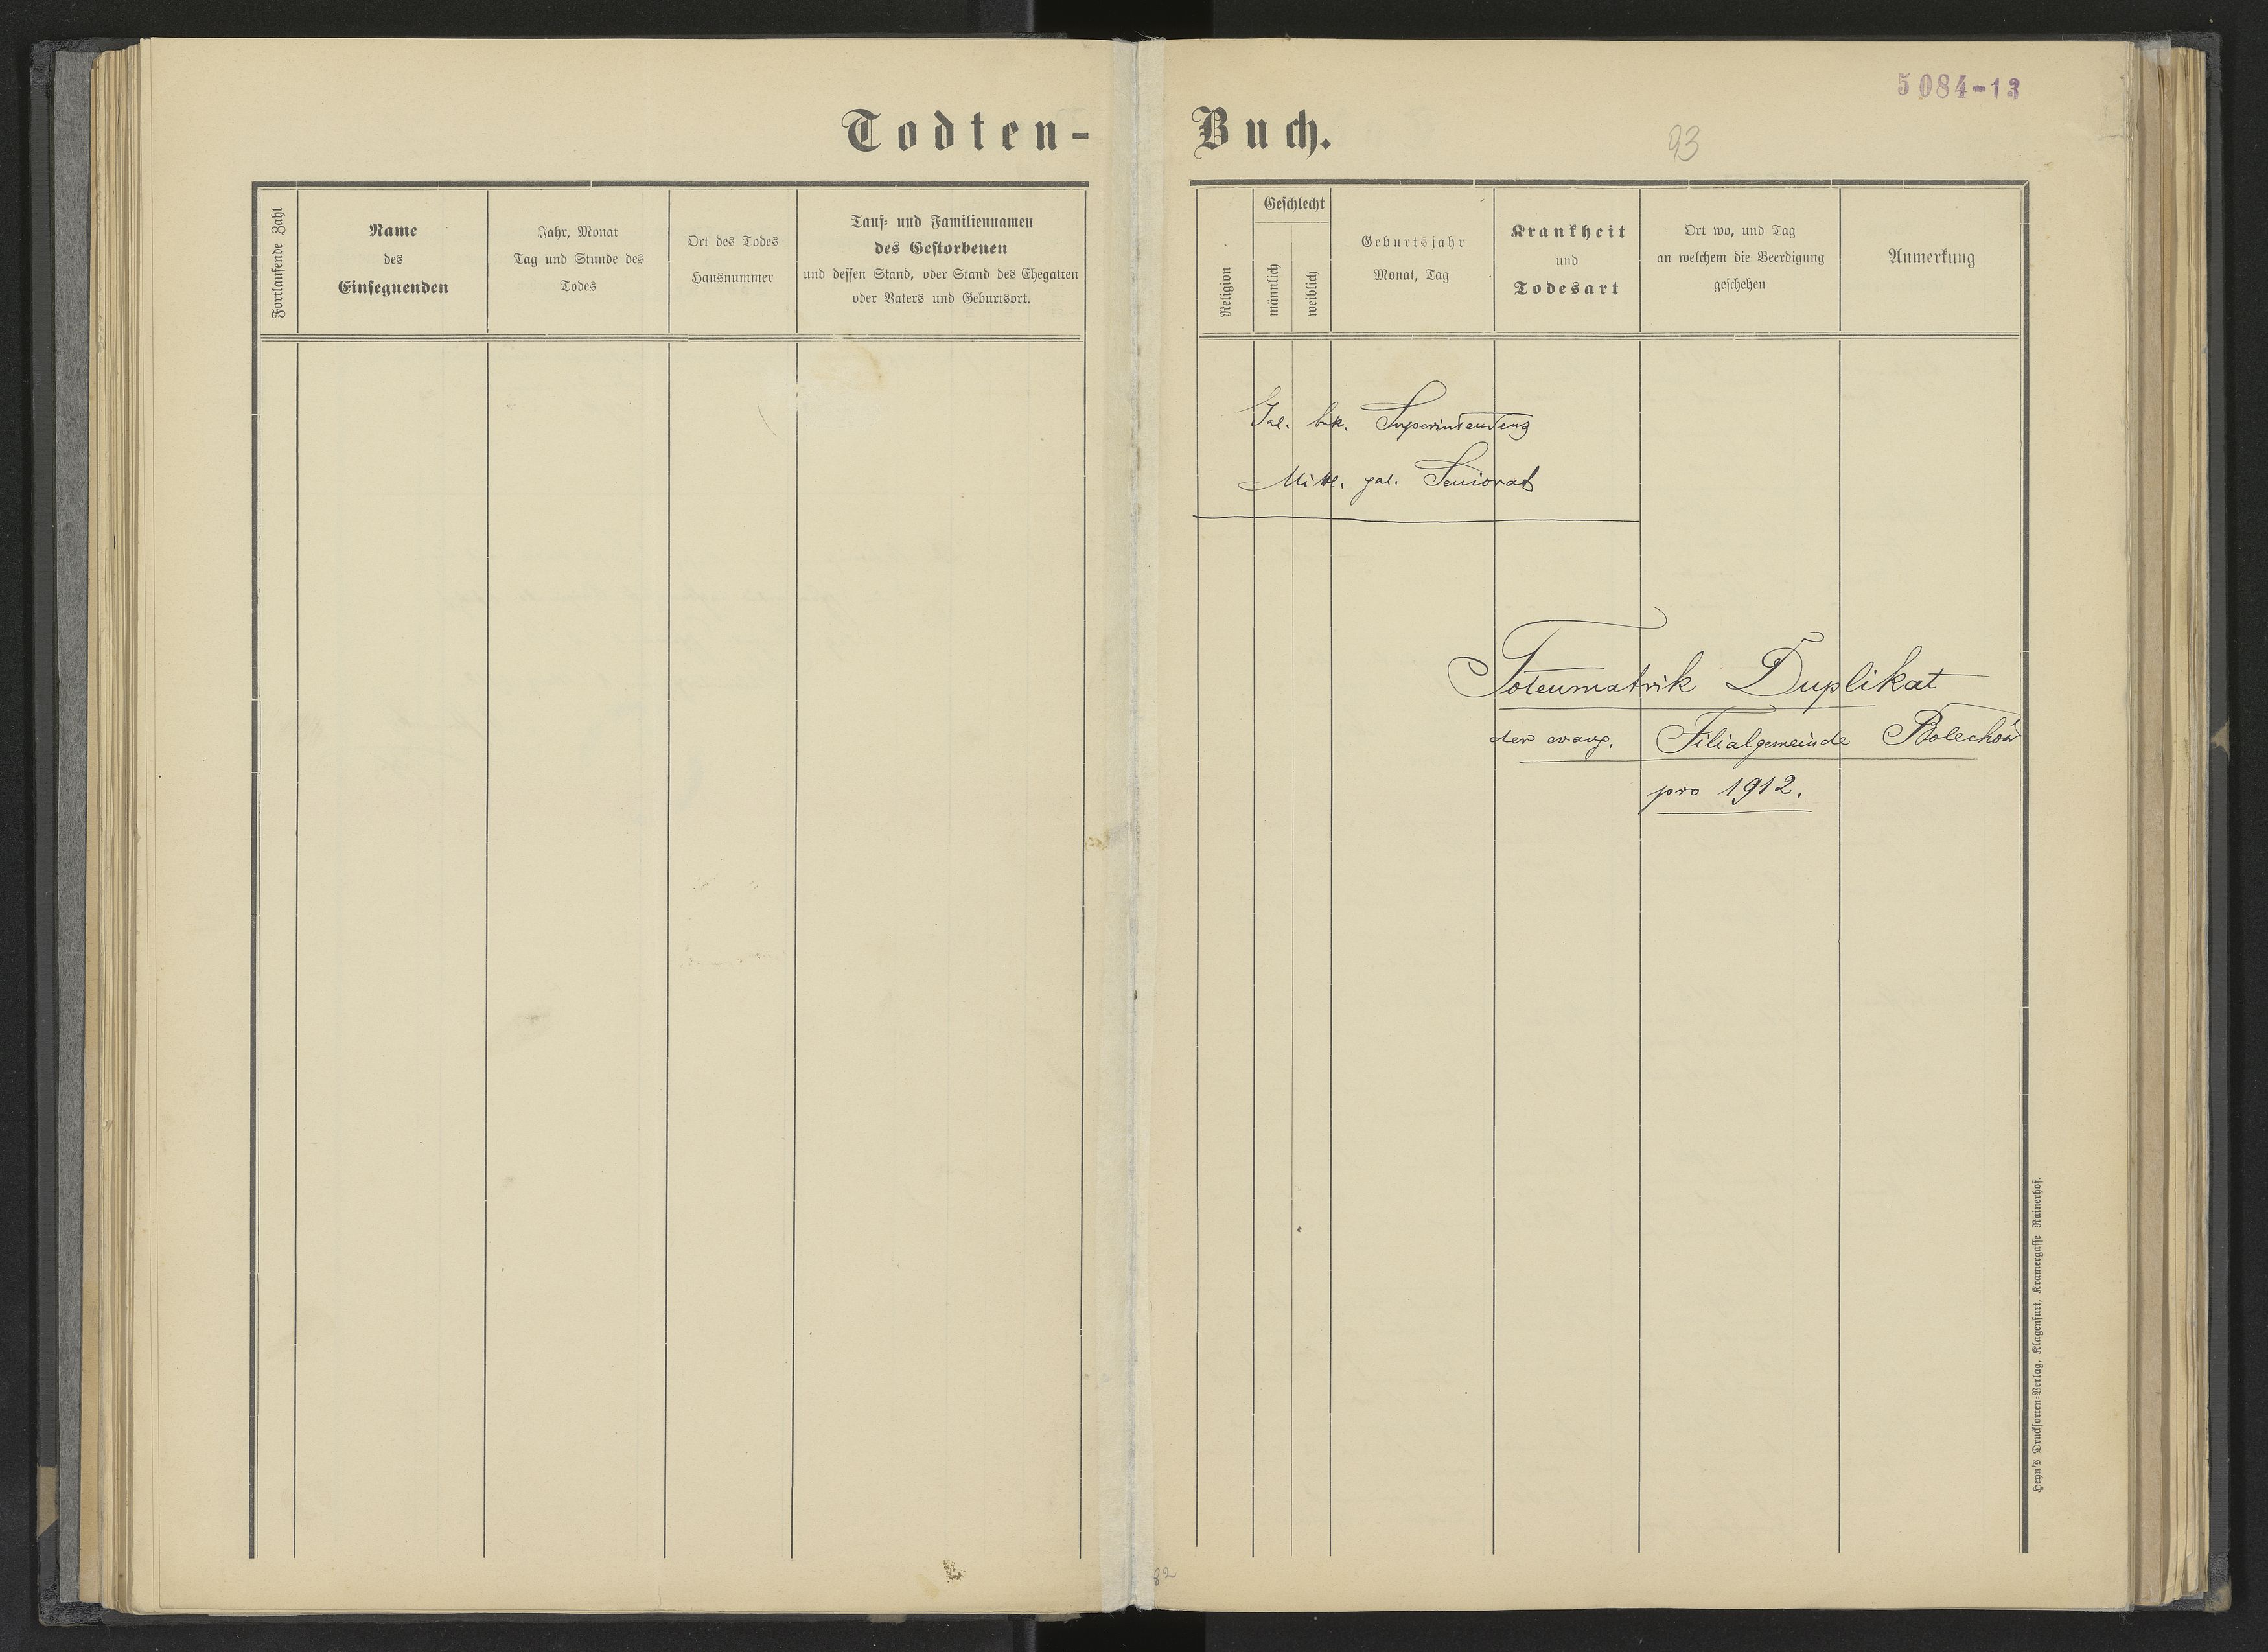 5084-13
Todten-Buch.
93
Fortlaufende Zahl
Name
des
Einsegnenden
Jahr, Monat
Tag und Stunde des
Todes
Ort des Todes
Hausnummer
Tauf- und Familiennamen
des Gestorbenen
und dessen Stand, oder Stand des Ehegatten
oder Vaters und Geburtsort.
Religion
Geschlecht
männlich
weiblich
Geburtsjahr
Monat, Tag
Krankheit
und
Todesart
Ort wo, und Tag
an welchem die Beerdigung
geschehen
Anmerkung
Gal. buk. Superintendenz
Mittl. gal. Seniorat
Totenmatrik Duplikat
der evang. Filialgemeinde Bolechów
pro 1912.
Heyn's Drucksorten-Verlag, Klagenfurt, Kramergasse Rainerhof.
82